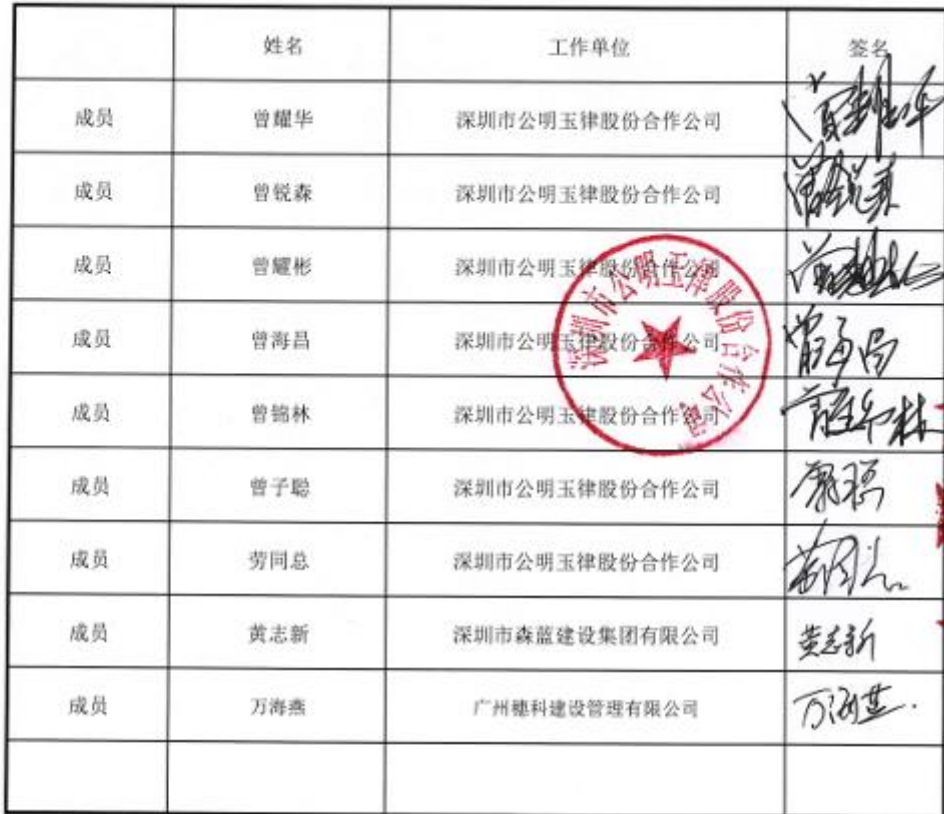 姓名 工作单位 签名
成员 曾耀华 深圳市公明玉律股份合作公司
成员 曾锐森 深圳市公明玉律股份合作公司
成员 曾耀彬 深圳市公明玉律股份合作公司
成员 曾海昌 深圳市公明玉律股份合作公司
成员 曾锦林 深圳市公明玉律股份合作公司
成员 曾子聪 深圳市公明玉律股份合作公司
成员 劳同总 深圳市公明玉律股份合作公司
成员 黄志新 深圳市森蓝建设集团有限公司 黄志新
成员 万海燕 广州穗科建设管理有限公司 万海燕
深圳市公明玉律股份合作公司